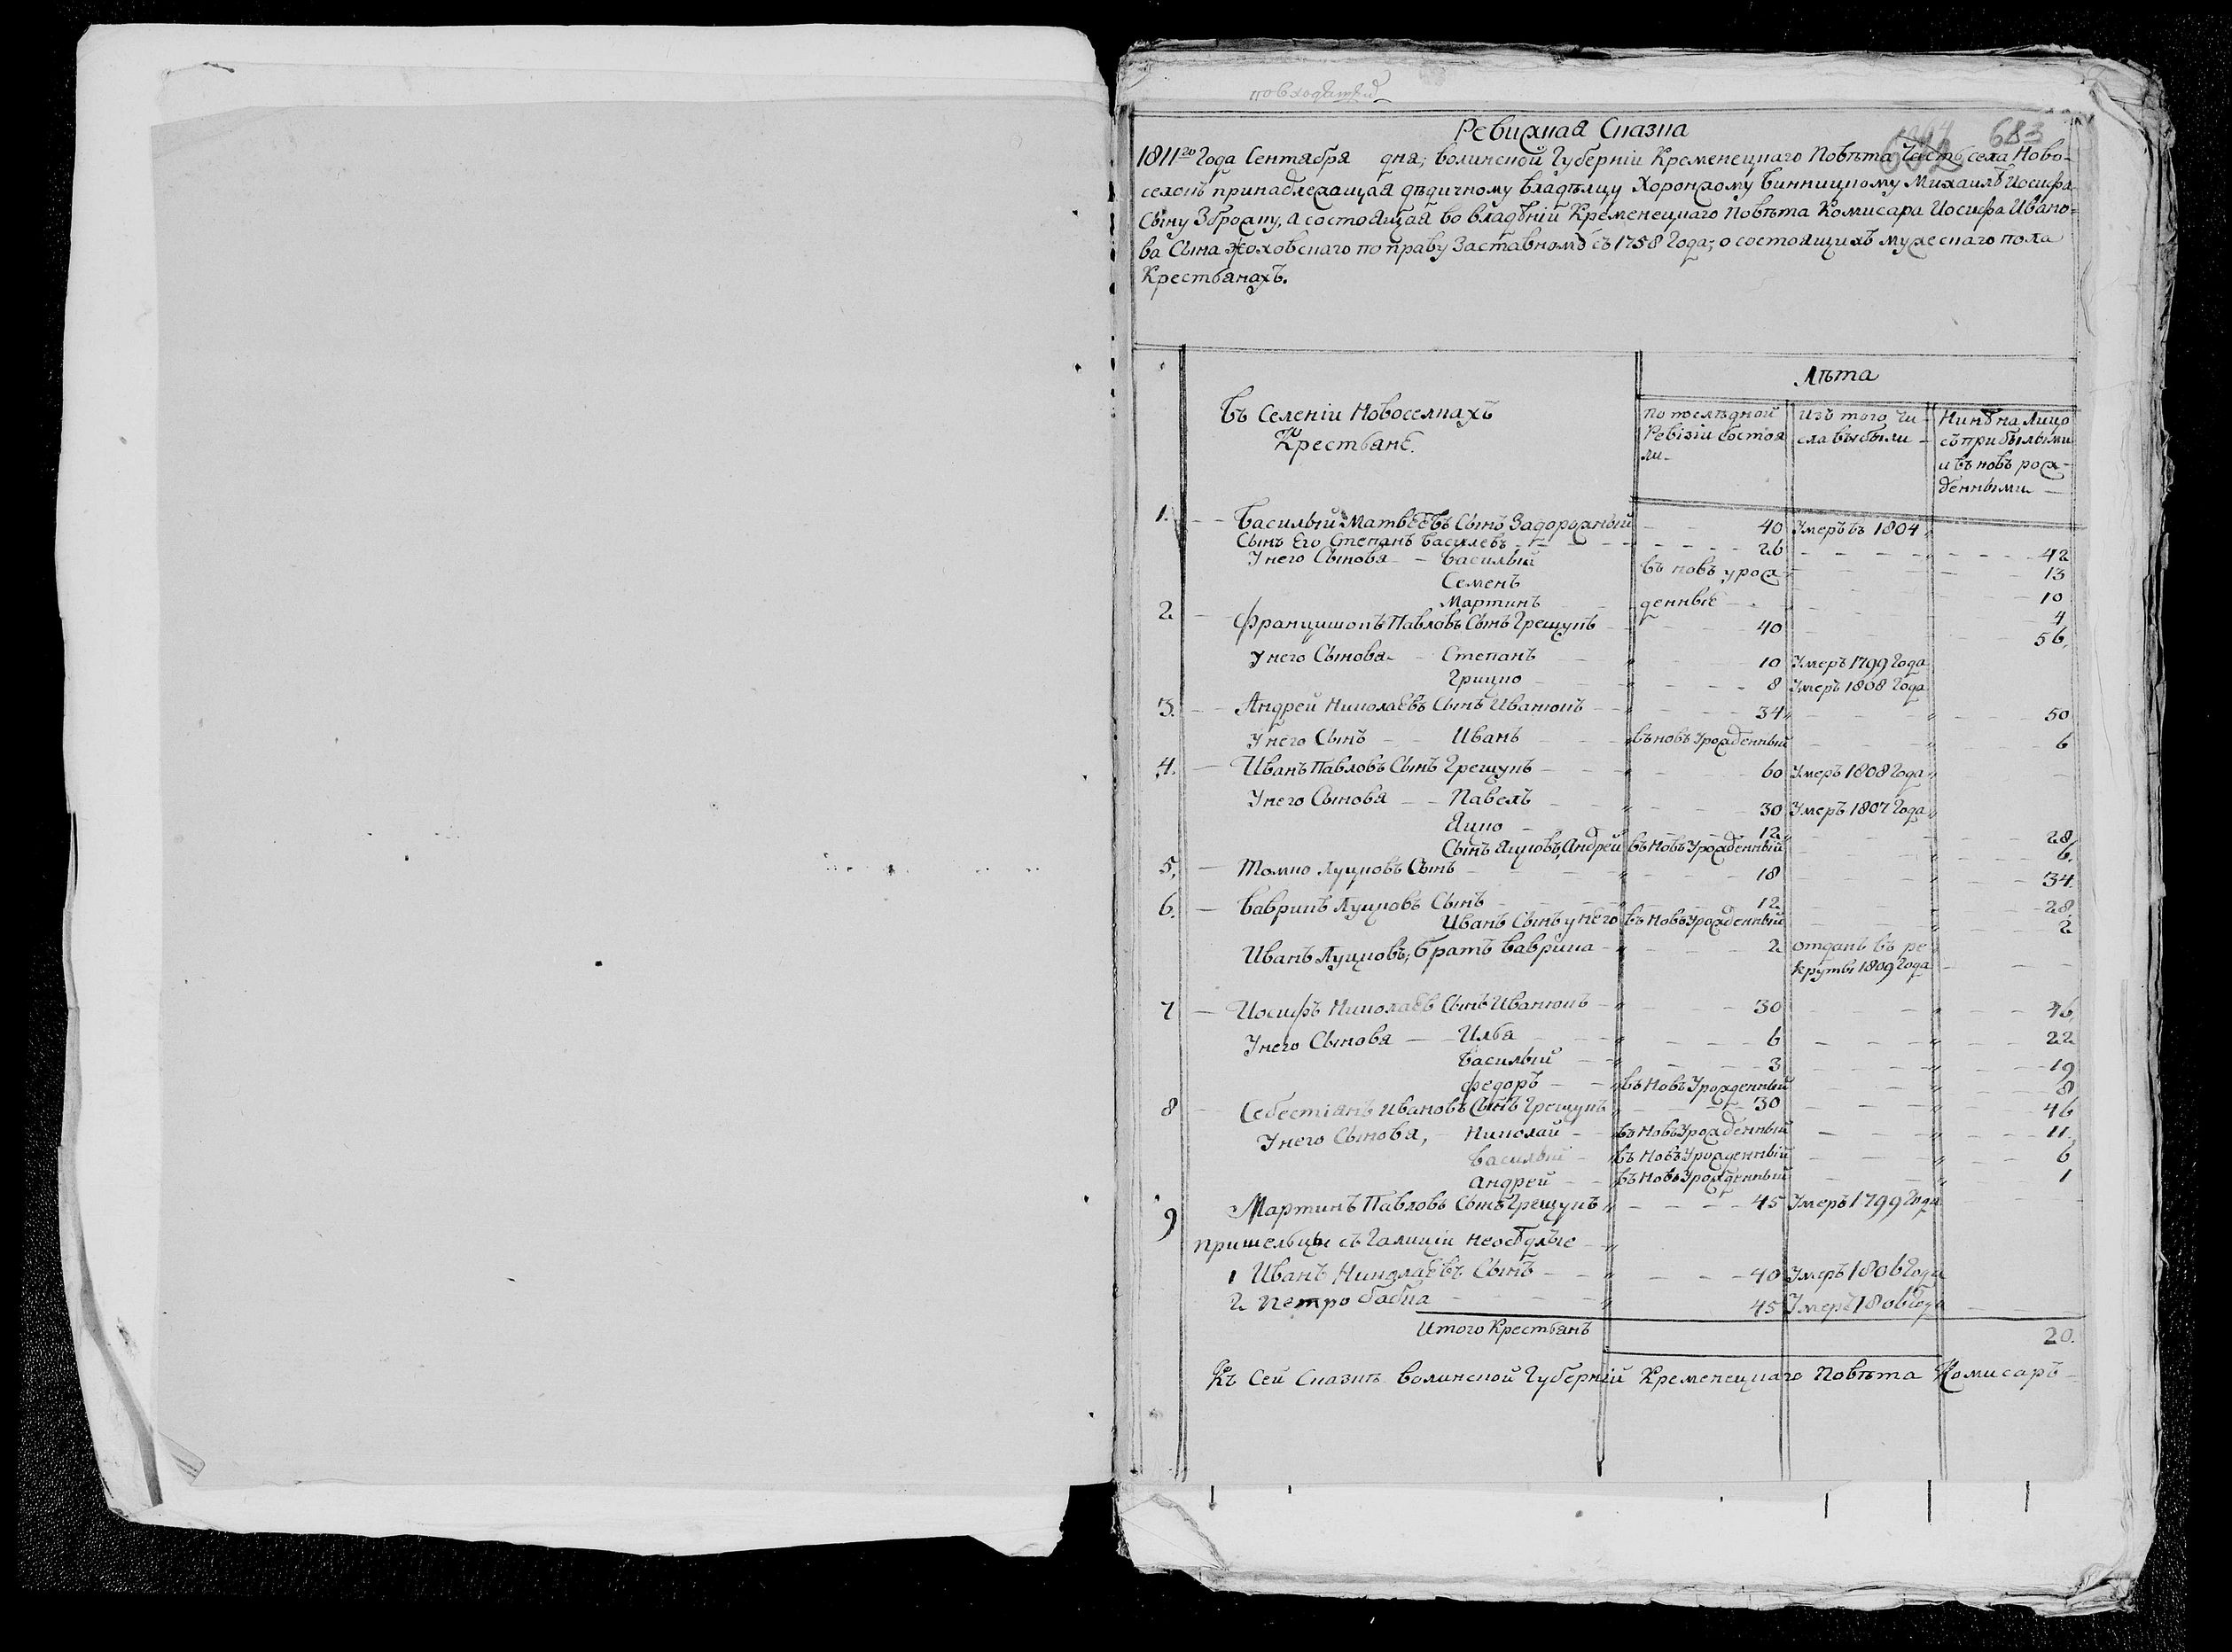 683
Ревижная Сказка
1811го Года Сентября дня; волинской Губерніи Кременецкаго Повѣта Часть села Ново-
селокъ принадлежащая дѣдичному владѣлцу Хоронжому Винницкому Михаилѣ Иосифа
Сыну Зброжку, а состоящая во владѣніи Кременецкаго Повѣта Комисара Иосифа Ивано-
ва Сына Жоховскаго по праву Заставномъ съ 1758 Года; о состоящихъ мужескаго пола
Крестьянахъ.
Лѣта
въ Селеніи Новоселкахъ
Крестьянѣ.
по послѣдной Ревізіи состояли-
Изъ того числа выбыли -
Нинѣ на Лицо съ прибылыми и въ новъ рожденными
1. Василый Матвѣевъ Сынъ Задорожный 40 Умеръ въ 1804
Сынъ Его Степанъ Василевъ 26 42
У него Сыновя Василый въ новъ урож- 13
Семенъ 10
Мартинъ денныѣ 4
2 Францишокъ Павловъ Сынъ Грещукъ 40 56
У него Сыновя Степанъ 10 Умеръ 1799 Года
Грицко 8 Умеръ 1808 Года
3. Андрей Николаевъ Сынъ Иванюкъ 34 50
У него Сынъ Иванъ въ новъ Урожденный 6
4. Иванъ Павловъ Сынъ Грещукъ 60 Умеръ 1808 Года
У него Сыновя Павелъ 30 Умеръ 1807 Года
Яцко 12 28
Сынъ Яцковъ, Андрей въ новъ Урожденный 6.
5. Томко Луцковъ Сынъ 18 34.
6. Ваврикъ Луцковъ Сынъ 12 28.
Иванъ Сынъ у него въ новъ Урожденный 2
Иванъ Луцковъ, братъ Ваврика 2 отданъ въ ре-
круты 1809 Года
7 Иосифъ Николаевъ Сынъ Иванюкъ 30 46
У него Сыновя Илья 6 22
Василый 3 19
Федоръ въ новъ Урожденный 8
8 Себестіянъ Ивановъ Сынъ Грещукъ 30 46
У него Сыновя, Николай въ новъ Урожденный 11
Василый въ новъ Урожденный 6
Андрей въ новъ Урожденный 1
9 Мартинъ Павловъ Сынъ Грещукъ 45 Умеръ 1799 Года
Пришельцы съ Галиціи неосѣдлые
1 Иванъ Николаевъ Сынъ 40 Умеръ 1806 Года
2 Петро Бабка 45 Умеръ 1806 Года
Итого Крестьянъ 20.
Къ Сей Сказкѣ волинской Губерній Кременецкаго Повѣта Комисаръ